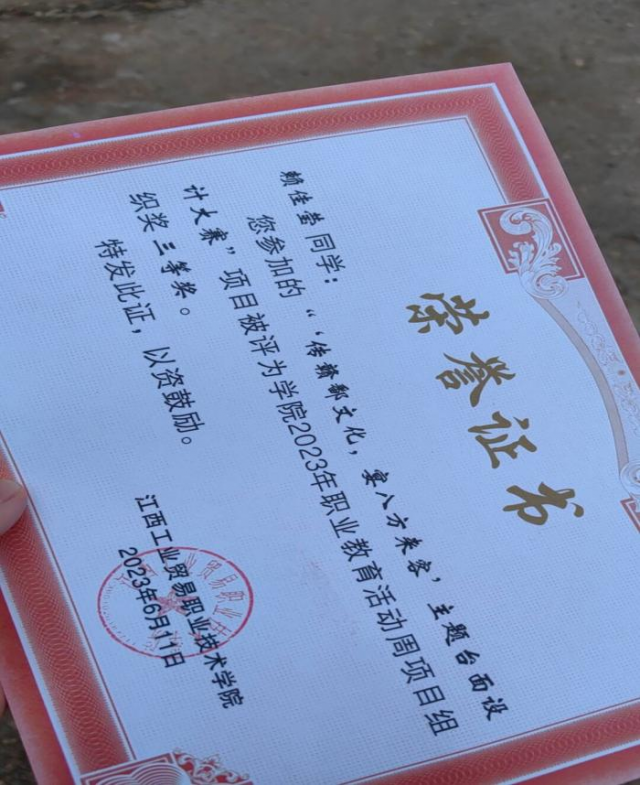 荣誉证书
赖佳莹同学：
您参加的“‘传赣鄱文化，宴八方来客’主题台面设
计大赛”项目被评为学院2023年职业教育活动周项目组
织奖三等奖。
特发此证，以资鼓励。
江西工业贸易职业技术学院
2023年6月11日